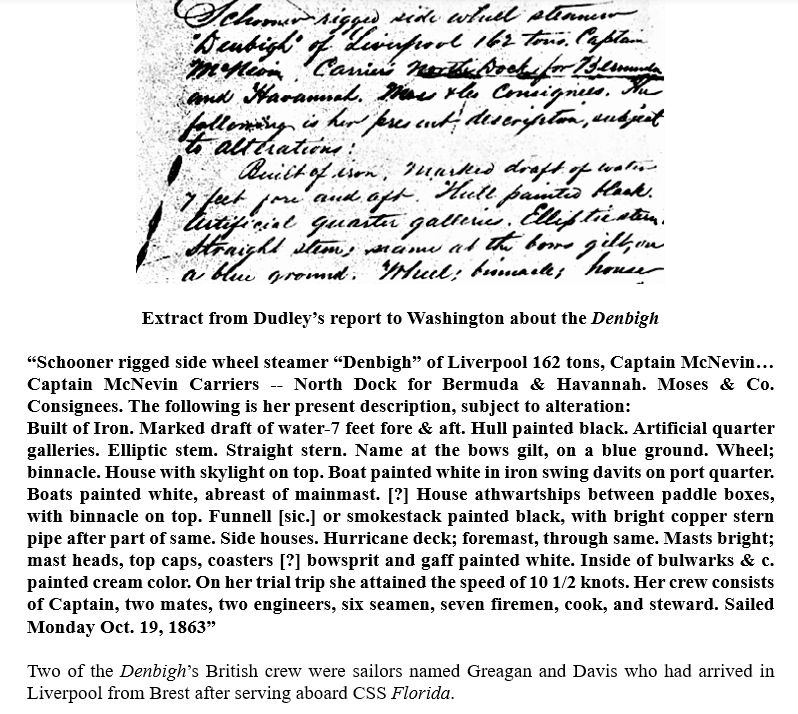 Schooner rigged side wheel steamer
"Denbigh" of Liverpool 162 tons. Captain
McNevin Carriers North Dock for Bermuda
and Havannah. Moses & Co Consignees. The
following is her present description, subject
to alterations:
Built of iron, marked draft of water
7 feet fore and aft. Hull painted black.
Artificial quarter galleries. Elliptic stem.
Straight stem; name at the bows gilt, on
a blue ground. Wheel; binnacle; house
Extract from Dudley’s report to Washington about the Denbigh
“Schooner rigged side wheel steamer “Denbigh” of Liverpool 162 tons, Captain McNevin…
Captain McNevin Carriers -- North Dock for Bermuda & Havannah. Moses & Co.
Consignees. The following is her present description, subject to alteration:
Built of Iron. Marked draft of water-7 feet fore & aft. Hull painted black. Artificial quarter
galleries. Elliptic stem. Straight stern. Name at the bows gilt, on a blue ground. Wheel;
binnacle. House with skylight on top. Boat painted white in iron swing davits on port quarter.
Boats painted white, abreast of mainmast. [?] House athwartships between paddle boxes,
with binnacle on top. Funnell [sic.] or smokestack painted black, with bright copper stern
pipe after part of same. Side houses. Hurricane deck; foremast, through same. Masts bright;
mast heads, top caps, coasters [?] bowsprit and gaff painted white. Inside of bulwarks & c.
painted cream color. On her trial trip she attained the speed of 10 1/2 knots. Her crew consists
of Captain, two mates, two engineers, six seamen, seven firemen, cook, and steward. Sailed
Monday Oct. 19, 1863”
Two of the Denbigh’s British crew were sailors named Greagan and Davis who had arrived in
Liverpool from Brest after serving aboard CSS Florida.